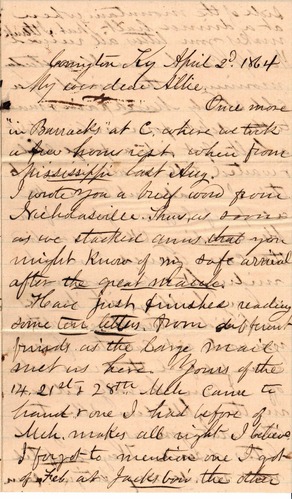 Covington Ky April 2d. 1864
My ever dear Allie.
Once more
"in Barracks" at C, where we took
a few hours rest, when from
Mississippi last Aug.
I wrote you a brief word from
Nicholasville. Thurs, as soon
as we stacked arms that you
might know of my safe arrival
after the great march.
Have just finished reading
some ten letters from different
friends as the large mail
met us here. Yours of the
14, 21st & 28th Mch. came to
hand & one I had before of
Mch. makes all right. I believe
I forgot to mention one I got
of Feb. at Jacksboro. the other